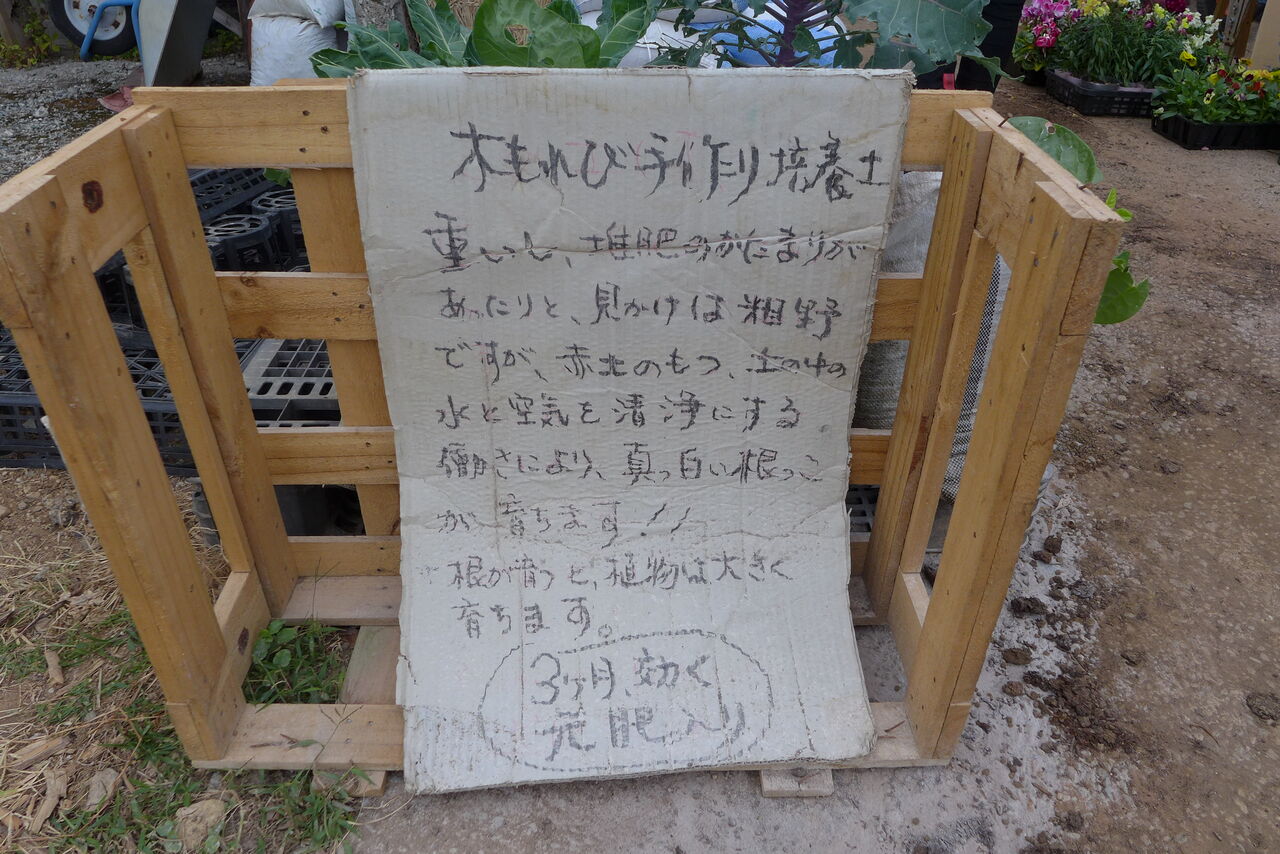 木もれび手作り培養土
重いし、堆肥のかたまりが
あったりと、見かけは粗野
ですが、赤土のもつ、土の中の
水と空気を清浄にする
働きにより、真っ白い根っこ
が育ちます!!
根が育つと、植物は大きく
育ちます。
3ヶ月、効く
元肥入り